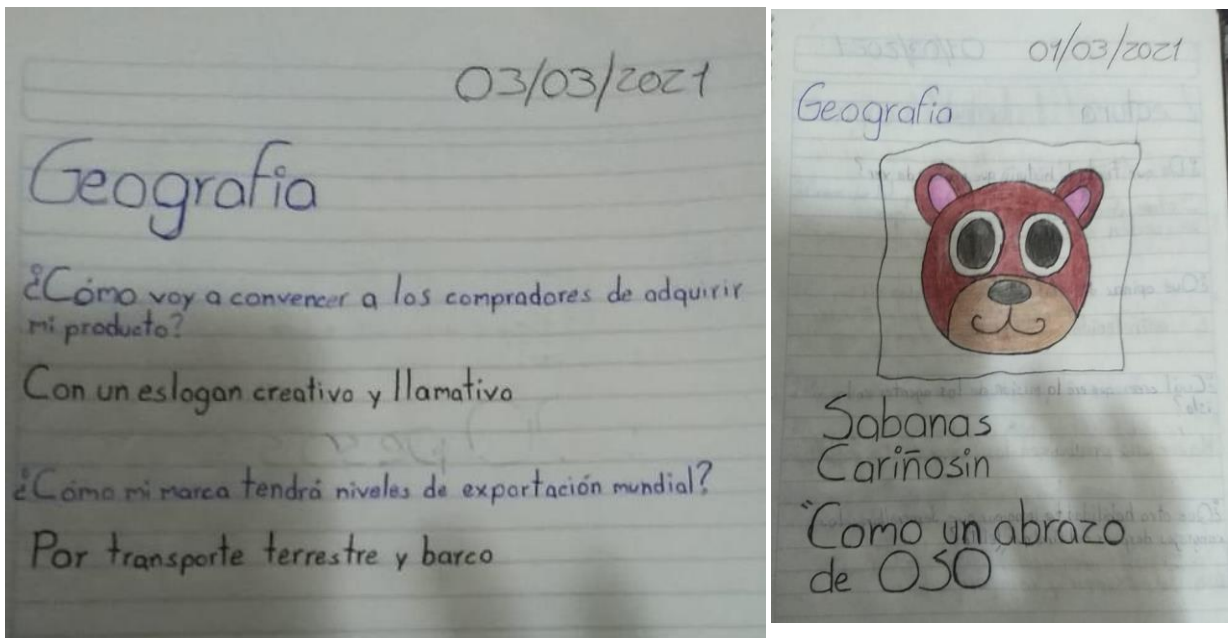 03/03/2021
Geografia
¿Cómo voy a convencer a los compradores de adquirir
mi producto?
Con un eslogan creativo y llamativo
¿Cómo mi marca tendrá niveles de exportación mundial?
Por transporte terrestre y barco
01/03/2021
Geografia
Sabanas
Cariñosin
"Como un abrazo
de OSO